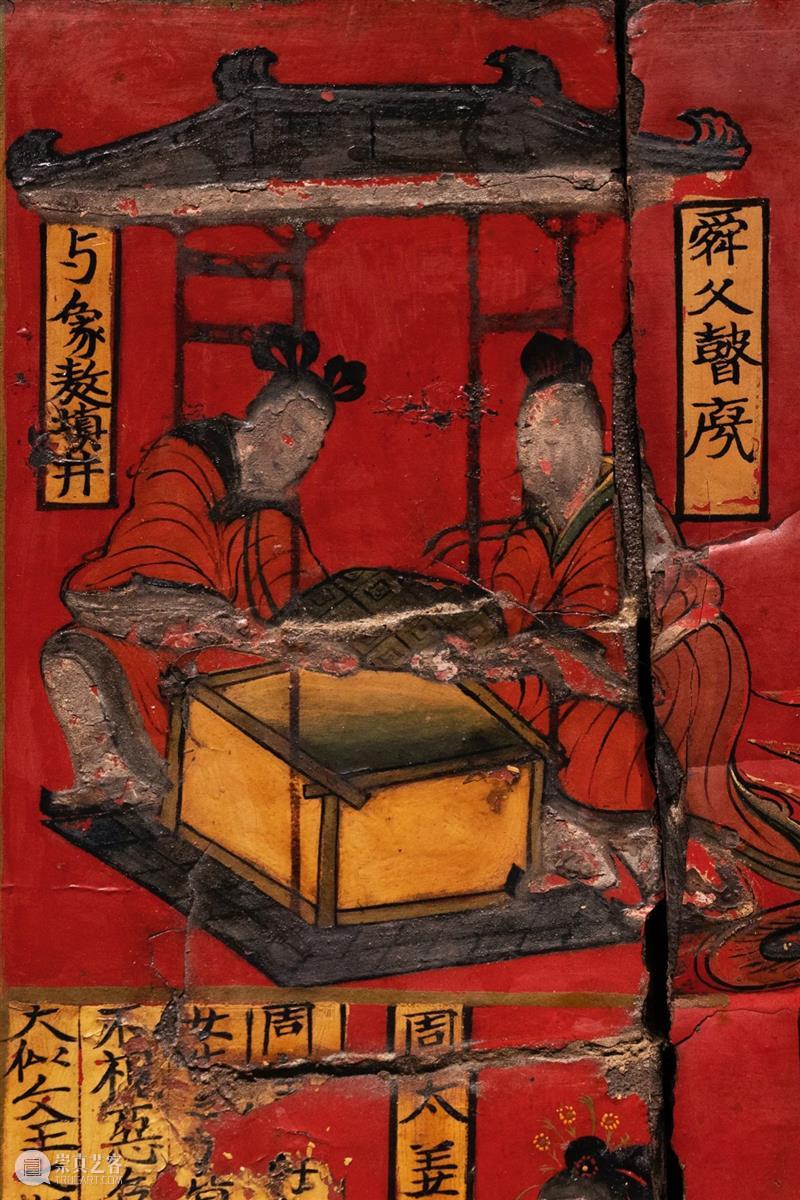 舜父瞽叟
与象敖填井
周太姜
周
不視惡
大似文王
崇真艺客
TRUEART.COM